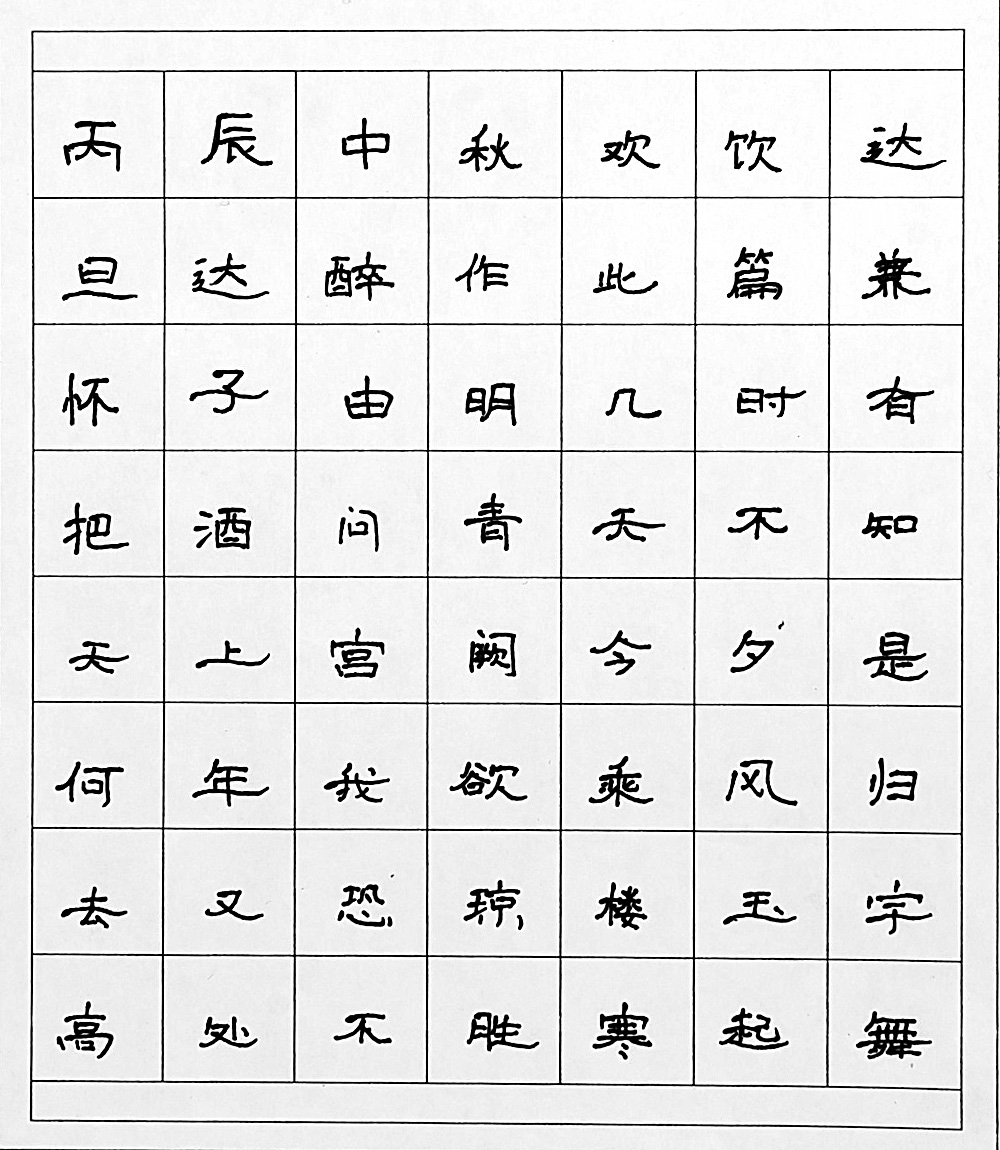 丙辰中秋欢饮达
旦达醉作此篇兼
怀子由明几时有
把酒问青天不知
天上宫阙今夕是
何年我欲乘风归
去又恐琼楼玉宇
高处不胜寒起舞